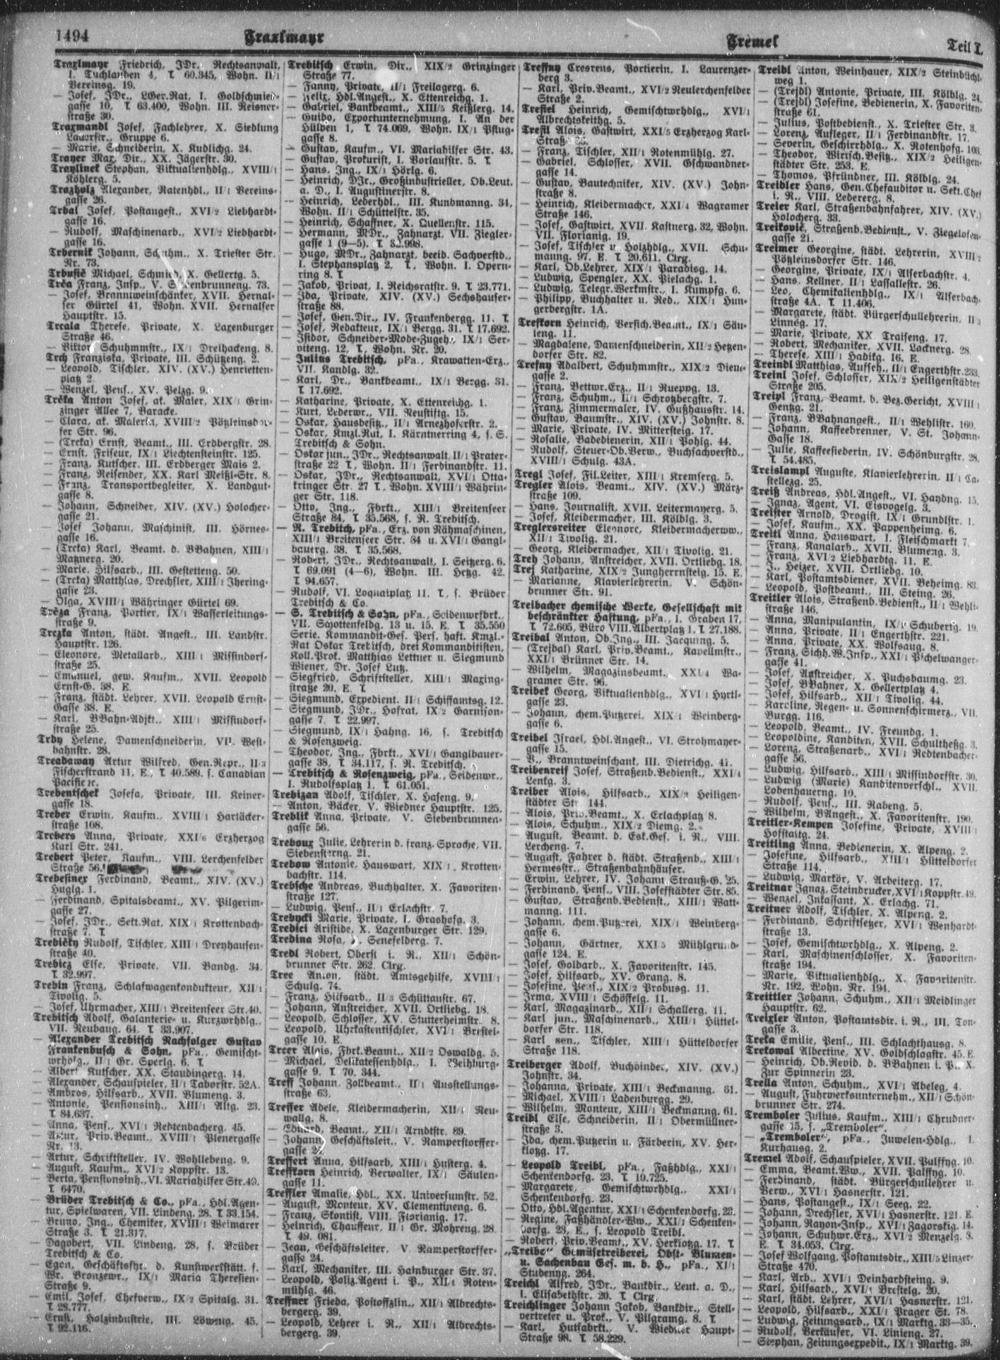 1494
Traxlmayr
Tremel
Teil I.
Traxlmayr Friedrich, JDr. Rechtsanwalt,
I. Tuchlauben 4, T 60.345, Wohn. II/1
Vereinsg. 19.
— Josef, JDr., LGer.Rat, I. Goldschmied-
gasse 10, T 63.400, Wohn. III. Reisner-
straße 30.
Traxmandl Josef, Fachlehrer, X. Siedlung
Laaerstr., Gruppe 6.
— Marie, Schneiderin, X. Kudlichg. 24.
Trayer Max, Dir., XX. Jägerstr. 30.
Traxlinek Stephan, Viktualienhdlg., XVIII/1
Köhlerg. 5.
Traxholz Alexander, Ratenhdl., II/1 Vereins-
gasse 26.
Trbal Josef, Postangest., XVI/2 Liebhardt-
gasse 16.
— Rudolf, Maschinenarb., XVI/2 Liebhardt-
gasse 16.
Trbernik Johann, X. Triester Str.
Nr. 73.
Trbusić Michael, Schmied, X. Gellertg. 5.
Trča Franz, Insp., V. Siebenbrunneng. 73.
— Josef, Branntweinschänker, XVII. Hernal-
ser Gürtel 41, Wohn. XVII. Hernalser
Hauptstr. 15.
Trcala Therese, Private, X. Laxenburger
Straße 46.
— Viktor, Schuhmmstr., IX/1 Dreihackeng. 8.
Trch Franziska, Private, III. Schützeng. 2.
— Leopold, Tischler, XIV. (XV.) Henrietten-
platz 2.
— Wenzel, Pens., XV. Pelzg. 9.
Trčka Anton Josef, ak. Maler, XIX/1 Grin-
zinger Allee 7, Baracke.
— Clara, ak. Malerin, XVIII/2 Pötzleinsdor-
fer Str. 96.
— (Trcka) Ernst, Beamt., III. Erdbergstr. 28.
— Ernst, Friseur, IX/1 Liechtensteinstr. 125.
— Franz, Kutscher, III. Erdberger Mais 2.
— Franz, Reisender, XX. Karl Meißl-Str. 8.
— Franz, Transportbegleiter, X. Landgut-
gasse 8.
— Johann, Schneider, XIV. (XV.) Holocher-
gasse 21.
— Josef Johann, Maschinist, III. Hörnes-
gasse 16.
— (Trcka) Karl, Beamt. d. BBahnen, XIII/1
Matznerg. 20.
— Marie, Hilfsarb., III. Gestetteng. 50.
— (Trcka) Matthias, Drechsler, XIII/1 Ihering-
gasse 23.
— Olga, XVIII/1 Währinger Gürtel 69.
Trčza Franz, Portier, IX/1 Wasserleitungs-
straße 9.
Trczka Anton, städt. Angest., III. Landstr.
Hauptstr. 126.
— Eleonore, Metallarb., XIII/1 Missindorf-
straße 25.
— Emanuel, gew. Kaufm., VII. Leopold
Ernst-G. 38. E.
— Franz, städt. Lehrer, XVII. Leopold Ernst-
Gasse 38. E.
— Karl, BBahn-Adjkt., XIII/1 Missindorf-
straße 25.
Trdy Helene, Damenschneiderin, VII. West-
bahnstr. 28.
Treadaway Artur Wilfred, Gen.Repr., II/3
Fischerstrand 11, E., T 40.589, s. Canadian
Pacific rc.
Trebentschek Josefa, Private, III. Keiner-
gasse 18.
Treber Erwin, Kaufm., XVIII/1 Hartäcker-
straße 108.
Trebers Anna, Private, XXI/6 Erzherzog
Karl Str. 241.
Trebert Peter, Kaufm., VIII. Lerchenfelder
Straße 56.
Trebesiner Ferdinand, Beamt., XIV. (XV.)
Huglg. 1.
— Ferdinand, Spitalsbeamt., XV. Pilgerim-
gasse 27.
— Josef, JDr., Sekt.Rat, XIX/1 Krottenbach-
straße 7. T
Trebičky Rudolf, Tischler, XIII/1 Dreyhausen-
straße 40.
Trebicz Else, Private, VII. Bandg. 34.
T 32.997.
Trebin Franz, Schlafwagenkondukteur, XII/1
Tivolig. 5.
— Josef, Uhrmacher, XIII/1 Breitenseer Str. 40.
Trebitsch Adolf, Galanterie- u. Kurzwrhdlg.,
VII. Neubaug. 64. T 33.907.
— Alexander Trebitsch Nachfolger Gustav
Frankenbusch & Sohn, pFa., Gemischt-
wrhdlg., II/1 Gr. Sperlg. 6. T
— Albert, Kutscher, XX. Staudingerg. 14.
— Alexander, Schauspieler, II/1 Taborstr. 52A.
— Ambros, Hilfsarb., XVII. Blumeng. 3.
— Antonie, Pensionsinh., XIII/1 Altg. 23.
T 84.637.
— Anna, Pens., XVI/1 Redtenbacherg. 45.
— Artur, Priv.Beamt., XVIII/1 Plenergasse
Nr. 13.
— Artur, Schriftsteller, IV. Wohllebeng. 9.
— August, Kaufm., XVI/2 Koppstr. 13.
— Berta, Pensionsinh., VI. Mariahilfer Str. 49.
T 6470.
— Brüder Trebitsch & Co., pFa., Hdl.Agen-
tur, Spielwaren, VII. Lindeng. 28. T 33.154.
— Bruno, Ing., Chemiker, XVIII/1 Weimarer
Straße 3. T 21.317.
— Dagobert, VII. Lindeng. 28, s. Brüder
Trebitsch & Co.
— Egon, Geschäftsfhr. d. Kunstwerkstätt. f.
Wr. Bronzewr., IX/1 Maria Theresien-
Straße 5.
— Emil, Josef, Chefverw., IX/2 Spitalg. 31.
T 28.777.
— Ernst, Holzindustrie, III. Löwnig. 45.
T 92.116.
Trebitsch Erwin, Dir., XIX/2 Grinzinger
Straße 77.
— Fanny, Private, II/1 Freilagerg. 6.
— Felix, Hdl.Angest., X. Ettenreichg. 1.
— Gabriel, Bankbeamt., XIII/5 Keißlerg. 14.
— Guido, Exportunternehmung, I. An der
Hülben 1, T 74.069, Wohn. IX/1 Pflug-
gasse 8.
— Gustav, Kaufm., VI. Mariahilfer Str. 43.
— Gustav, Prokurist, I. Vorlaufstr. 5. T
— Hans, Ing., IX/1 Hörlg. 6.
— Heinrich, DJr., Großindustrieller, Ob.Leut.
a. D., I. Augustinerstr. 8.
— Heinrich, Lederhdl., III. Kundmanng. 34,
Wohn. II/1 Schüttelstr. 35.
— Heinrich, Schaffner, X. Quellenstr. 115.
— Hermann, MDr., Zahnarzt, VII. Ziegler-
gasse 1 (9—5). T 32.998.
— Hugo, MDr., Zahnarzt, beeid. Sachverstd.,
I. Stephansplatz 2, T, Wohn. I. Opern-
ring 8. T
— Jakob, Privat, I. Reichsratstr. 9. T 23.771.
— Ida, Private, XIV. (XV.) Sechshauser-
straße 88.
— Josef, Gen.Dir., IV. Frankenbergg. 11. T
— Josef, Redakteur, IX/1 Bergg. 31. T 17.692.
— Isidor, Schneider-Mode-Zugeh., IX/1 Ser-
viteng. 12, T, Wohn. Nr. 20.
— Julius Trebitsch, pFa., Krawatten-Erz.,
VII. Kandlg. 32.
— Karl, Dr., Bankbeamt., IX/1 Bergg. 31.
T 17.692.
— Katharine, Private, X. Ettenreichg. 1.
— Kurt, Lederwr., VII. Neustiftg. 15.
— Oskar, Hausbesitz., II/1 Arnezhoferstr. 2.
— Oskar, Knzl.Rat, I. Kärntnerring 4, s. S.
Trebitsch & Sohn.
— Oskar jun., JDr., Rechtsanwalt, II/1 Prater-
straße 22 T, Wohn. II/1 Ferdinandstr. 11.
— Oskar, JDr., Rechtsanwalt, XVI/1 Otta-
kringer Str. 27 T, Wohn. XVIII/1 Währin-
ger Str. 118.
— Otto, Ing., Fbrkt., XIII/1 Breitenseer
Straße 84, T 35.568, s. R. Trebitsch.
— R. Trebitsch, pFa., Erz. von Nähmaschinen,
XIII/1 Breitenseer Str. 84 u. XVI/1 Gangl-
bauerg. 38. T 35.568.
— Robert, JDr., Rechtsanwalt, I. Seitzerg. 6.
T 69.091 (4—6), Wohn. III. Hetzg. 42.
T 94.657.
— Rudolf, VI. Loquaiplatz 11. T, s. Brüder
Trebitsch & Co.
— S. Trebitsch & Sohn, pFa., Seidenwrfbrt.,
VII. Schottenfeldg. 13 u. 15. E T 35.550
Serie. Kommandit-Ges. Pers. haft. Knzl.-
Rat Oskar Trebitsch, drei Kommanditisten,
Koll.Prok. Matthias Lettner u. Siegmund
Wiener, Dr. Josef Lutz.
— Siegfried, Schriftsteller, XIII/1 Maxing-
straße 20. E. T
— Siegmund, Expedient, II/1 Schiffamtsg. 12.
— Siegmund, JDr., Hofrat, IX/2 Garnison-
gasse 7. T 22.997.
— Siegmund, IX/1 Hahng. 16, s. Trebitsch
& Rosenzweig.
— Theodor, Ing., Fbrkt., XVI/1 Ganglbauer-
gasse 38, T 34.117, s. R. Trebitsch.
— Trebitsch & Rosenzweig, pFa., Seidenwr.,
I. Rudolfsplatz 1. T 61.051.
Trebizan Adolf, Tischler, X. Haseng. 9.
— Anton, Bäcker, V. Wiedner Hauptstr. 125.
Treblik Anna, Private, V. Siebenbrunnen-
gasse 56.
Trebour Julie, Lehrerin d. franz. Sprache, VII.
Siebensterng. 21.
Trebow Antonie, Hauswart, XIX/1 Krotten-
bachstr. 114.
Trebsche Andreas, Buchhalter, X. Favoriten-
straße 127.
— Ludwig, Pens., II/1 Erlachstr. 7.
Trebycki Marie, Private, I. Grashofg. 3.
Tredici Aristide, X. Laxenburger Str. 129.
Tredina Rosa, Senefelderg. 7.
Tredl Robert, Oberstl. i. R., XII/1 Schön-
brunner Str. 262. Clrg.
Tree Anton, städt. Amtsgehilfe, XVIII/1
Schulg. 74.
— Franz, Hilfsarb., II/3 Schüttaustr. 67.
— Johann, Anstreicher, XVII. Ortliebg. 18.
— Leopold, Schlosser, XV. Stutterheimstr. 8.
— Leopold, Uhrkastentischler, XVI/1 Brestel-
gasse 10. E.
Treer Alois, Fbrt.Beamt., XII/2 Oswaldg. 5.
— Michael, Delikatessenhdlg., I. Weihburg-
gasse 9. T 70.344.
Treff Johann, Zollbeamt., II/1 Ausstellungs-
straße 63.
Treffer Adele, Kleidermacherin, XII/1 Neu-
wallg. 8.
— Eduard, Beamt., XII/1 Arndtstr. 89.
— Johann, Geschäftsleit., V. Ramperstorffer-
gasse
Treffert Anna, Hilfsarb., XIII/1 Husterg. 4.
Treffkorn Heinrich, Verwalter, IX/1 Säulen-
gasse 11.
Treffler Amalie, Hdl., XX. Universumstr. 52.
— August, Monteur, XV. Clementineng. 6.
— Franz, Skontist, VIII. Florianig. 17.
— Heinrich, Chauffeur, II/1 Gr. Mohreng. 28.
T 49.081.
— Jean, Geschäftsleiter, V. Ramperstorffer-
gasse 24.
— Karl, Mechaniker, III. Hainburger Str. 37.
— Leopold, Poliz.Agent i. P., XII/1 Roten-
mühlg. 46.
Treffner Frieda, Postoffzlin., XII/1 Albrechts-
bergerg. 39.
— Leopold, Lehrer i. R., XII/1 Albrechts-
bergerg. 39.
Treffny Crescens, Portierin, I. Laurenzer-
berg 3.
— Karl, Priv.Beamt., XVI/2 Neulerchenfelder
Straße 2.
Treffel Heinrich, Gemischtwrhdlg., XVI/1
Albrechtskreithg. 5.
Trefil Alois, Gastwirt, XXI/5 Erzherzog Karl-
Straße
— Franz, Tischler, XII/1 Rotenmühlg. 27.
— Gabriel, Schlosser, XVII. Gschwandner-
gasse 14.
— Gustav, Bautechniker, XIV. (XV.) John-
straße 8.
— Heinrich, Kleidermacher, XXI/4 Wagramer
Straße 146.
— Josef, Gastwirt, XVII. Kastnerg. 32, Wohn.
VII. Florianig. 19.
— Josef, Tischler u. Holzhdlg., XVII. Schu-
manng. 97. E T 20.611. Clrg.
— Karl, Ob.Lehrer, XIX/1 Paradisg. 14.
— Ludwig, Spengler, XX. Pielachg. 1.
— Ludwig, Telegr.Werkmstr., I. Kumpfg. 6.
— Philipp, Buchhalter u. Red., XIX/1 Hun-
gerbergstr. 1A.
Trefkorn Heinrich, Versich.Beamt., IX/1 Säu-
leng. 11.
— Magdalene, Damenschneiderin, XII/2 Hetzen-
dorfer Str. 82.
Trefny Adalbert, Schuhmmstr., XIX/2 Dien-
gasse 2.
— Franz, Bettwr.Erz., II/1 Rueppg. 13.
— Franz, Schuhm., II/1 Schrotzbergstr. 7.
— Franz, Zimmermaler, IV. Gußhausstr. 14.
— Gustav, Baumstr., XIV. (XV.) Johnstr. 8.
— Marie, Private, IV. Mittersteig. 17.
— Rosalie, Badebedienerin, XII/1 Pohlg. 44.
— Rudolf, Steuer-Ob.Berw., Buchsachverstd.,
XVIII/1 Schulg. 43A.
Tregl Josef, Fil.Leiter, XIII/1 Kremserg. 5.
Tregler Alois, Beamt., XIV. (XV.) März-
straße 109.
— Hans, Journalist, XVII. Leitermayerg. 5.
— Josef, Kleidermacher, III. Kölblg. 3.
Treglersreiter Eleonore, Kleidermacherww.,
XII/1 Tivolig. 21.
— Georg, Kleidermacher, XII/1 Tivolig. 21.
Treh Johann, Anstreicher, XVII. Ortliebg. 18.
Trej Katharine, XIX/2 Jungherrnsteig. 15. E.
— Marianne, Klavierlehrerin, V. Schön-
brunner Str. 91.
Treibacher chemische Werke, Gesellschaft mit
beschränkter Haftung, pFa., I. Graben 17,
T 72.605, Büro VIII. Albertplatz 1. T 27.188.
Treibal Anton, Ob.Ing., III. Jacquing. 5.
— (Trejbal) Karl, Priv.Beamt., Kavellmstr.,
XXI/1 Brünner Str. 14.
— Wilhelm, Magazinsbeamt., XXI/4 Wa-
gramer Str. 96.
Treibek Georg, Viktualienhdlg., XVI/1 Hyrtl-
gasse 23.
— Johann, chem.Putzerei, XIX/1 Weinberg-
gasse 6.
Treibel Israel, Hdl.Angest., VI. Strohmayer-
gasse 15.
— V., Branntweinschänk., III. Dietrichg. 41.
Treibenreif Josef, Straßenb.Bedienst., XXI/4
Lenkg. 3.
Treiber Alois, Hilfsarb., XIX/2 Heiligen-
städter Str. 144.
— Alois, Priv.Beamt., X. Erlachplatz 8.
— Alois, Schuhm., XIX/2 Diemg. 2.
— August, Beamt. d. Est.Ges. i. R., VIII.
Lercheng. 7.
— August, Fahrer d. städt. Straßenb., XIII/1
Hermesstr., Straßenbahnhäuser.
— Erwin, Lehrer, IV. Johann Strauß-G. 25.
— Ferdinand, Pens., VIII. Josefstädter Str. 85.
— Gustav, Straßenb.Bedienst., XIII/1 Watt-
manng. 111.
— Johann, chem.Putzerei, XIX/1 Weinberg-
gasse 6.
— Johann, Gärtner, XXI/5 Mühlgrund-
gasse 124. E.
— Josef, Goldarb., X. Favoritenstr. 145.
— Josef, Hilfsarb., XV. Grang. 8.
— Josefine, Pens., XIX/2 Probusg. 11.
— Irma, XVIII/1 Schöffelg. 11.
— Karl, Magazinarb., XII/1 Schallerg. 11.
— Karl jun., Maschinenarb., XIII/1 Hüttel-
dorfer Str. 118.
— Karl sen., Tischler, XIII/1 Hütteldorfer
Straße 118.
Treiberger Adolf, Buchbinder, XIV. (XV.)
Johnstr. 34.
— Johanna, Private, XIII/1 Beckmanng. 61.
— Michael, XVIII/1 Ladenburgg. 29.
— Wilhelm, Monteur, XIII/1 Beckmanng. 61.
Treibl Else, Schneiderin, II/1 Obermüllner-
straße 3.
— Ida, chem.Putzerin u. Färberin, XV. Her-
klotzg. 17.
— Leopold Treibl, pFa., Faßhdlg., XXI/1
Schenkendorfg. 23. T 19.725.
— Margarete, Gemischtwrhdlg., XXI/1
Schenkendorfg. 23.
— Otto, Hdl.Agentur, XXI/1 Schenkendorfg. 23.
— Regine, Faßhändler-Ww., XXI/1 Schenken-
dorfg. 23. E., s. Leopold Treibl.
— Robert, Priv.Beamt., XV. Herklotzg. 17. T
„Treibe“ Gemüsetreiberei, Obst- Blumen-
u. Sachenbau Ges. m. b. H., pFa., XI/1
Studenyg. 264.
Treichl Alfred, JDr., Bankdir., Leut. a. D.,
I. Elisabethstr. 20. T Clrg.
Treichlinger Johann Jakob, Bankdir., Stell-
vertreter u. Prok., V. Pilgramg. 8. T
— Karl, Hutfabrkt., V. Wiedner Haupt-
Straße 98. T 58.229.
Treidl Anton, Weinhauer, XIX/2 Steinbüchl-
weg 1.
— (Trejdl) Antonie, Private, III. Kölblg. 24.
— (Trejdl) Josefine, Bedienerin, X. Favoriten-
straße 61.
— Julius, Postbedienst., X. Triester Str. 3.
— Lorenz, Aufleger, II/1 Ferdinandstr. 17.
— Severin, Geschirrhdlg., X. Rotenhofg. 108.
— Theodor, Wirtsch.Besitz., XIX/2 Heiligen-
städter Str. 253. E.
— Thomas, Pfründner, III. Kölblg. 24.
Treibler Hans, Gen.Chefauditor u. Sekt.Chef
i. R., VIII. Ledererg. 8.
Treier Karl, Straßenbahnfahrer, XIV. (XV.)
Holocherg. 33.
Treikovic, Straßenb.Bedienst., V. Ziegelofen-
gasse 21.
Treimer Georgine, städt. Lehrerin, XVIII/2
Pötzleinsdorfer Str. 146.
— Georgine, Private, IX/1 Alserbachstr. 4.
— Hans, Kellner, II/1 Lassallestr. 26.
— Leo, Chemikalienhdlg., IX/1 Alserbach-
straße 4A. T 11.406.
— Margarete, städt. Bürgerschullehrerin, II/1
Linneg. 17.
— Marie, Private, XX. Traiseng. 17.
— Robert, Mechaniker, XVII. Lacknerg. 28.
— Therese, XIII/1 Hadikg. 16. E.
Treindl Matthias, Aufseh., II/1 Engerthstr. 233.
Treinl Josef, Schlosser, XIX/2 Heiligenstädter
Straße 205.
Treipl Franz, Beamt. d. Bez.Gericht, XVIII/1
Gentzg. 21.
— Franz, BBahnangest., II/1 Wehlistr. 160.
— Johann, Kaffeebrenner, V. St. Johann-
Gasse 18.
— Julie, Kaffeesiederin, IV. Schönburgstr. 28.
T 54.485.
Treislampl Auguste, Klavierlehrerin, II/1 Ca-
stellezg. 25.
Treiß Andreas, Hdl.Angest., VI. Haydng. 15.
— Ignaz, Agent, VI. Esvogelg. 3.
Treister Arnold, Drogist, IX/1 Grundlstr. 1.
— Josef, Kaufm., XX. Pappenheimg. 6.
Treitl Anna, Hauswart, I. Fleischmarkt 7.
— Franz, Kanalarb., XVII. Blumeng. 3.
— Franz, XVI/2 Liebhardtg. 11. E.
— J., Heizer, XVII. Ortliebg. 10.
— Karl, Postamtsdiener, XVII. Beheimg. 83.
— Leopold, Postbeamt., III. Steing. 26.
Treitler Alois, Straßenb.Bedienst., II/1 Wehli-
straße 146.
— Anna, Manipulantin, IX/1 Schuberig. 19.
— Anna, Private, II/1 Engerthstr. 221.
— Anna, Private, XX. Wolfsaug. 8.
— Franz, Sich.W.Insp., XXI/1 Pichelwanger-
gasse 41.
— Josef, Anstreicher, X. Puchsbaumg. 23.
— Josef, BBahner, X. Gellertplatz 4.
— Josef, Hilfsarb., XII/1 Tivolig. 44.
— Karoline, Regen- u. Sonnenschirmerz., VII.
Burgg. 116.
— Leopold, Beamt., IV. Freundg. 1.
— Leopoldine, Kanditen, XVII. Schultheßg. 3.
— Lorenz, Straßenarb., XVI/1 Redtenbacher-
gasse 56.
— Ludwig, Hilfsarb., XIII/1 Missindorfstr. 30.
— Ludwig (Marie) Kanditenverschl., XVII.
Lobenhauerng. 19.
— Rudolf, Pens., III. Rabeng. 5.
— Wilhelm, BAngest., X. Favoritenstr. 190.
Treitler-Kempen Josefine, Private, XVIII/1
Hofstattg. 24.
Treitling Anna, Bedienerin, X. Alpeng. 2.
— Josefine, Hilfsarb., XIII/1 Hütteldorfer
Straße 114.
— Ludwig, Markör, V. Arbeiterg. 17.
Treitnar Ignaz, Steindrucker, XVI/1 Koppstr. 49.
— Wenzel, Inkassant, X. Erlachg. 71.
Treitner Adolf, Tischler, X. Alpeng. 2.
— Ferdinand, Schriftsetzer, XVI/1 Wenhardt-
straße 13.
— Josef, Gemischtwrhdlg., X. Alpeng. 2.
— Karl, Maschinenschlosser, X. Favoriten-
straße 194.
— Marie, Viktualienhdlg., X. Favoritenstr.
Nr. 192, Wohn. Nr. 194.
Treittler Johann, Schuhm., XII/1 Meidlinger
Hauptstr. 62.
Treixler Anton, Postamtsdir. i. R., III. Ton-
gasse 3.
Treka Emilie, Pens., III. Schlachthausg. 8.
Trekowal Albertine, XV. Goldschlagstr. 45. E.
— Heinrich, Ob.Revid. d. BBahnen i. P., X.
Zur Spinnerin 23.
Trella Anton, Schuhm., XVI/1 Abeleg. 4.
— August, Fuhrwerksunternehm., XII/1 Schön-
brunner Str. 274.
Tremboler Julius, Kaufm., XIII/1 Chrudner-
gasse 15, s. „Tremboler“.
— „Tremboler“, pFa., Juwelen-Hdlg., I.
Kurhausg. 2.
Tremel Adolf, Schauspieler, XVII. Palffyg. 10.
— Emma, Beamt.Ww., XVII. Palffyg. 10.
— Ferdinand, städt. Bürgerschullehrer u.
Berw., XVI/1 Hasnerstr. 121.
— Hans, Postangest., IX/1 Seeg. 22.
— Johann, Drechsler, XVI/1 Hasnerstr. 121. E.
— Johann, Rayon-Insp., XVI/1 Zagorskig. 14.
— Johann, Schuhwr.Erz., XVI/2 Menzelg. 8.
E. T 34.053. Clrg.
— Josef Wolfgang, Postamtsdir., XIII/5 Linzer
Straße 470.
— Karl, Arb., XVI/1 Deinhardsteing. 9.
— Karl, Hilfsarb., XVI/1 Brestelg. 20.
— Karl, städt. Lehrer, XVI/1 Hasnerstr. 121.
— Leopold, Hilfsarb., XXI/1 Prager St. 78.
— Ludwig, Zeitungsarb., IX/1 Marktg. 33—35.
— Rudolf, Verkäufer, VI. Linieng. 27.
— Stephan, Zeitungsexpedit., IX/1 Marktg. 39.